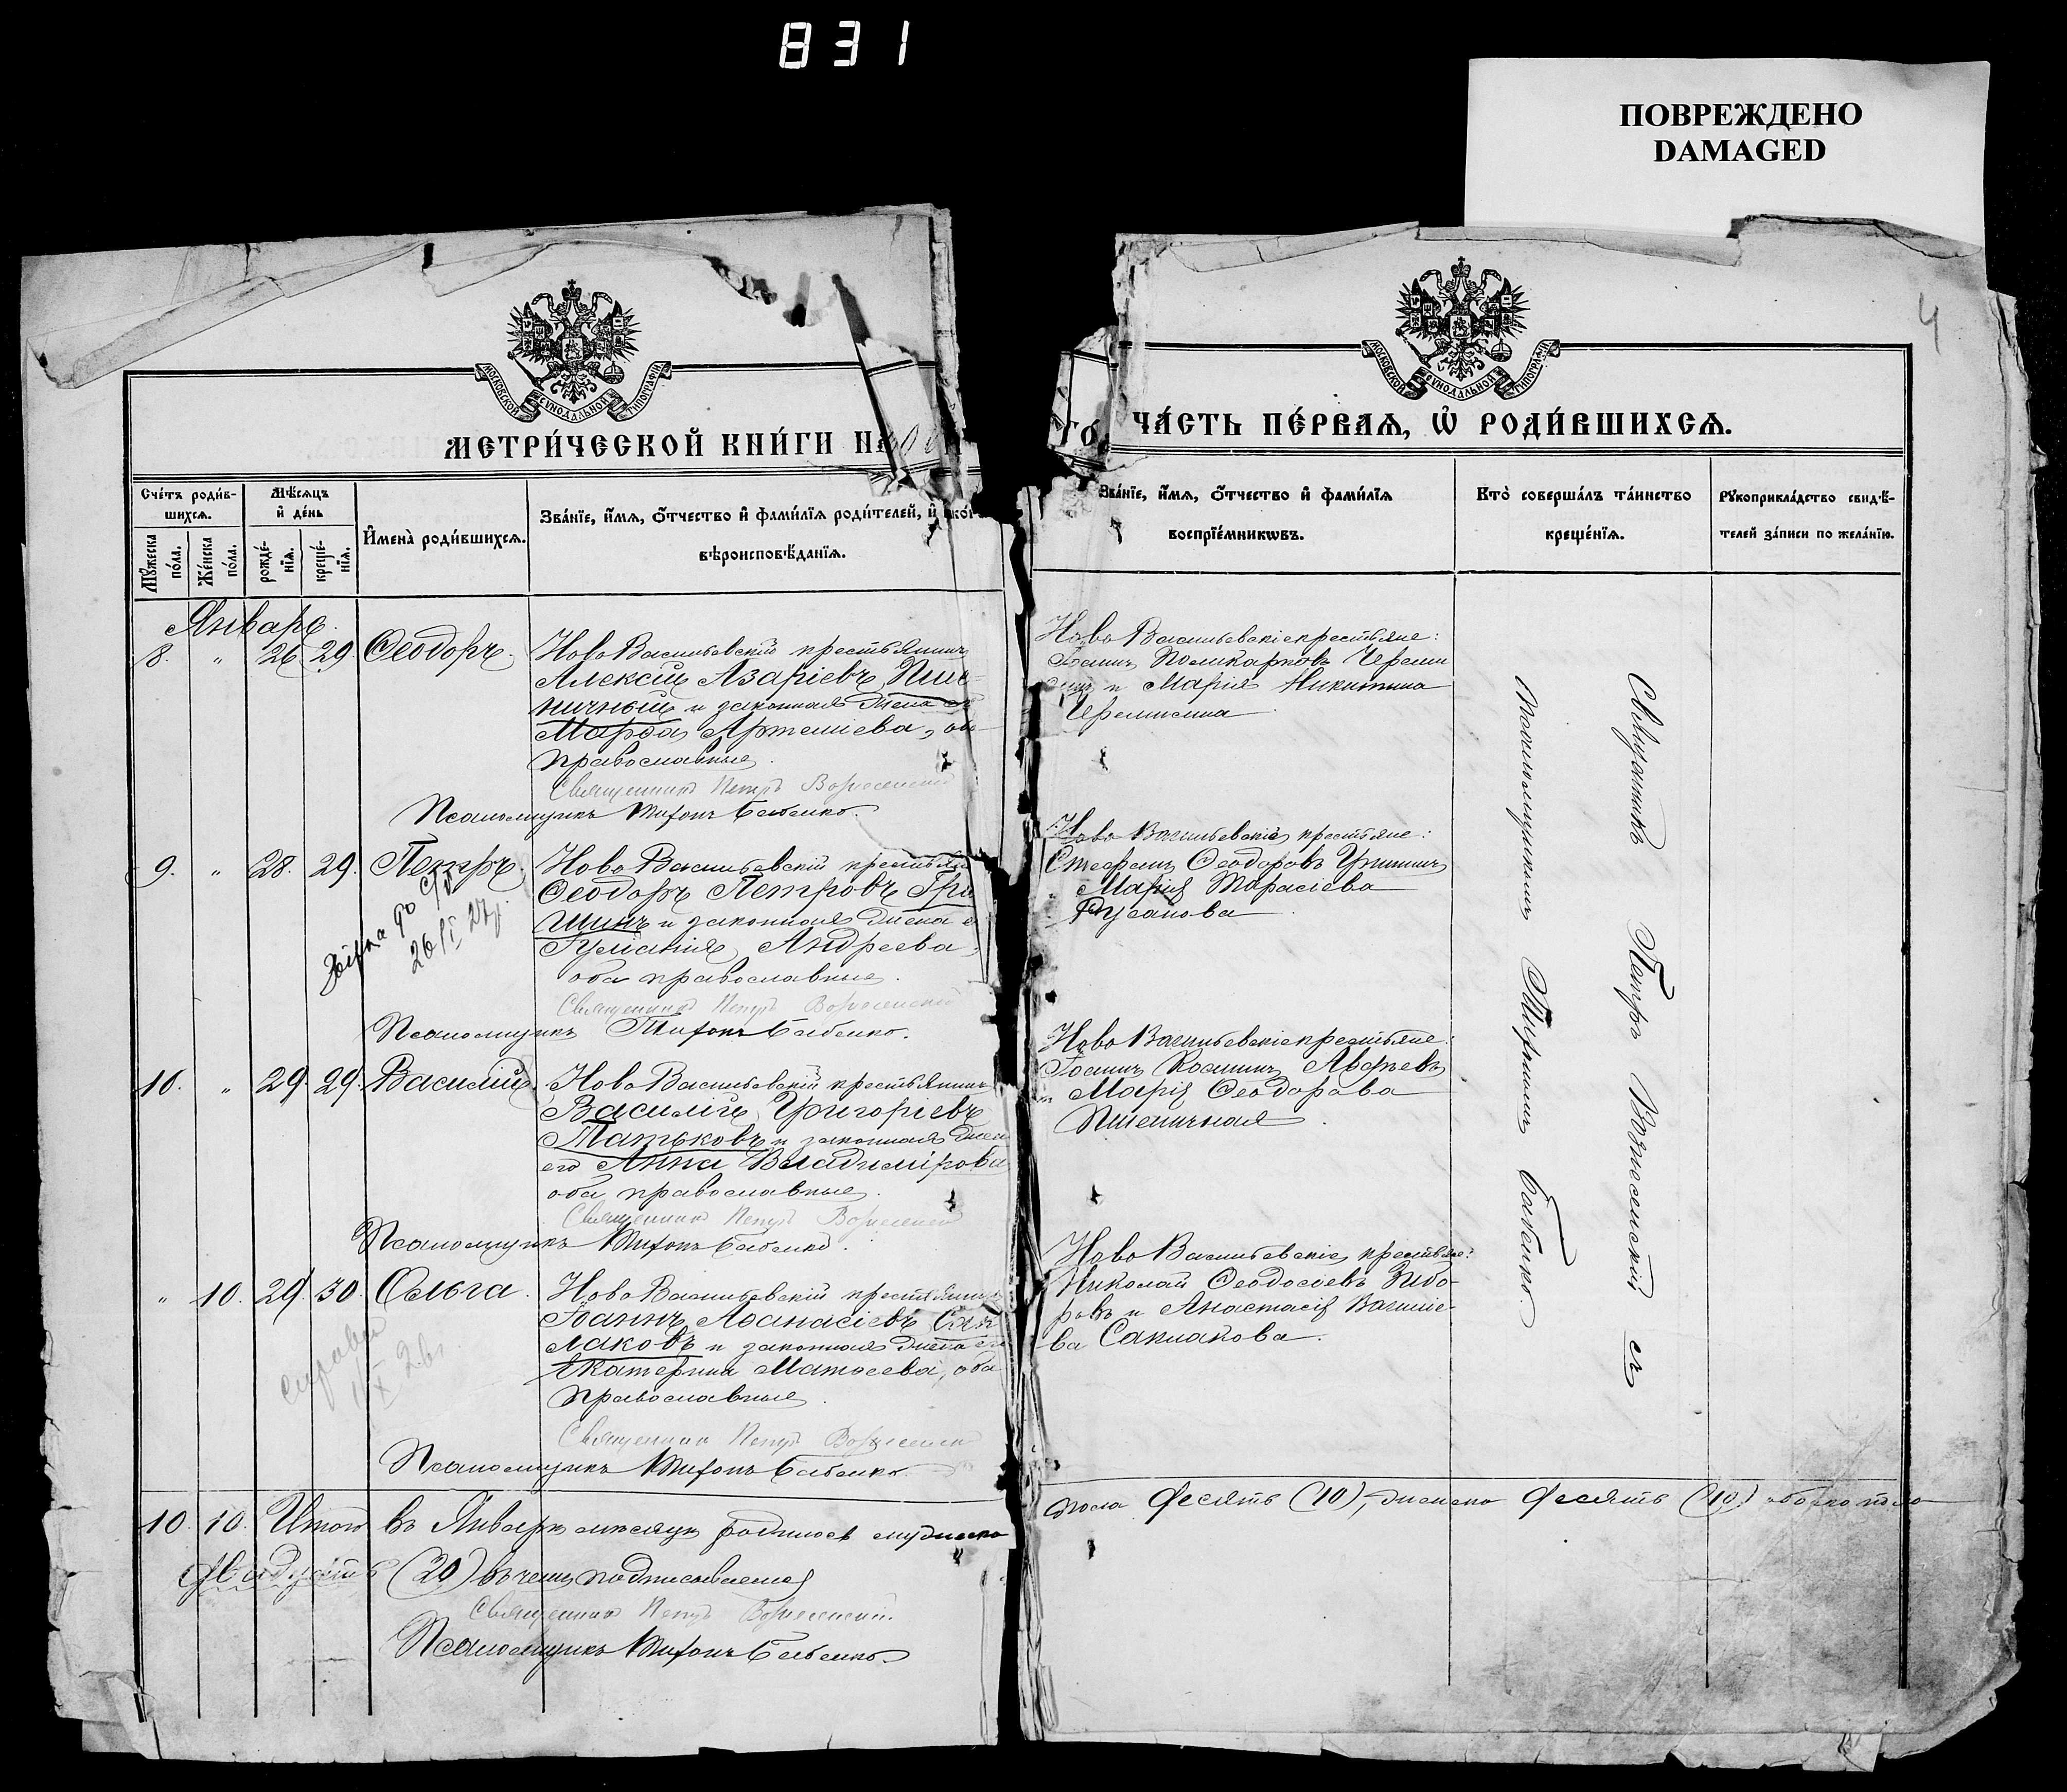 831
ПОВРЕЖДЕНО
DAMAGED
4
МОСКОВСКОЙ СѴНОДАЛЬНОЙ ТИПОГРАФІИ
МОСКОВСКОЙ СѴНОДАЛЬНОЙ ТИПОГРАФІИ
МЕТРИ́ЧЕСКОЙ КНИ́ГИ НА
ЧА́СТЬ ПЕ́РВАѦ, Ѡ҆ РОДИ́ВШИХСѦ.
Сче́тъ роди́в-
шихсѧ.
Мѹ́жеска по́ла.
Же́нска по́ла.
Мѣ́сѧцъ
и҆ де́нь
рожде́-
нїѧ.
креще́-
нїѧ.
И҆мена̀ роди́вшихсѧ.
Зва́нїе, и҆́мѧ, ѻ҆́тчество и҆ фами́лїѧ роди́телей, и҆
вѣроисповѣ́данїѧ.
Зва́нїе, и҆́мѧ, ѻ҆́тчество и҆ фами́лїѧ
воспрїе́мникѡвъ.
Кто̀ соверша́лъ та́инство
креще́нїѧ.
Рѹкоприкла́дство свидѣ́-
телей за́писи по жела́нїю.
Январь.
8. " 26 29. Ѳеодоръ.
Ново Васильевскій крестьянинъ
Алексій Азаріевъ Пше-
ничный и законная жена его
Марѳа Артеміева, оба
православные.
Священникъ Петръ Вознесенскій
Псаломщикъ Тихонъ Бабенко.
Ново Васильевскіе крестьяне:
Іоаннъ Поликарповъ Череми
синъ и Марія Никитина
Черемисина.
9. " 28. 29. Петръ.
26/I 27г.
Ново Васильевскій крестьян
Ѳеодоръ Петровъ Гри
шинъ и законная жена е
Андреева,
оба православные.
Священникъ Петръ Вознесенскій
Псаломщикъ Тихонъ Бабенко.
Ново Васильевскіе крестьяне:
Стефанъ Ѳеодоровъ Гришинъ
Марія Тарасіева
Русанова.
10. " 29. 29. Василій.
Ново Васильевскій крестьянинъ
Василій Григоріевъ
Татьковъ и законная жена
его Анна Владимірова
оба православные.
Священникъ Петръ Вознесенскій
Псаломщикъ Тихонъ Бабенко.
Ново Васильевскіе крестьяне:
Іоаннъ Марія Ѳеодорова
Пшеничная.
" 10. 29. 30. Ольга.
Ново Васильевскій крестьянин
Іоаннъ Аѳанасіевъ Сак
лаковъ и законная жена его
Екатерина Матѳеева, оба
православные.
Священникъ Петръ Вознесенскій
Псаломщикъ Тихонъ Бабенко.
Ново Васильевскіе крестьяне:
Николай Ѳеодосіевъ Зибо-
ровъ и Анастасія Василіе-
ва Саклакова.
Священникъ Петръ Вознесенскій съ
псаломщикомъ Тихономъ Бабенко.
10. 10. Итого въ Январѣ мѣсяцѣ родилось мужеска
пола десять (10), женска десять (10), обоего пола
двадцать (20) въ чемъ подписываемся
Священникъ Петръ Вознесенскій.
Псаломщикъ Тихонъ Бабенко.